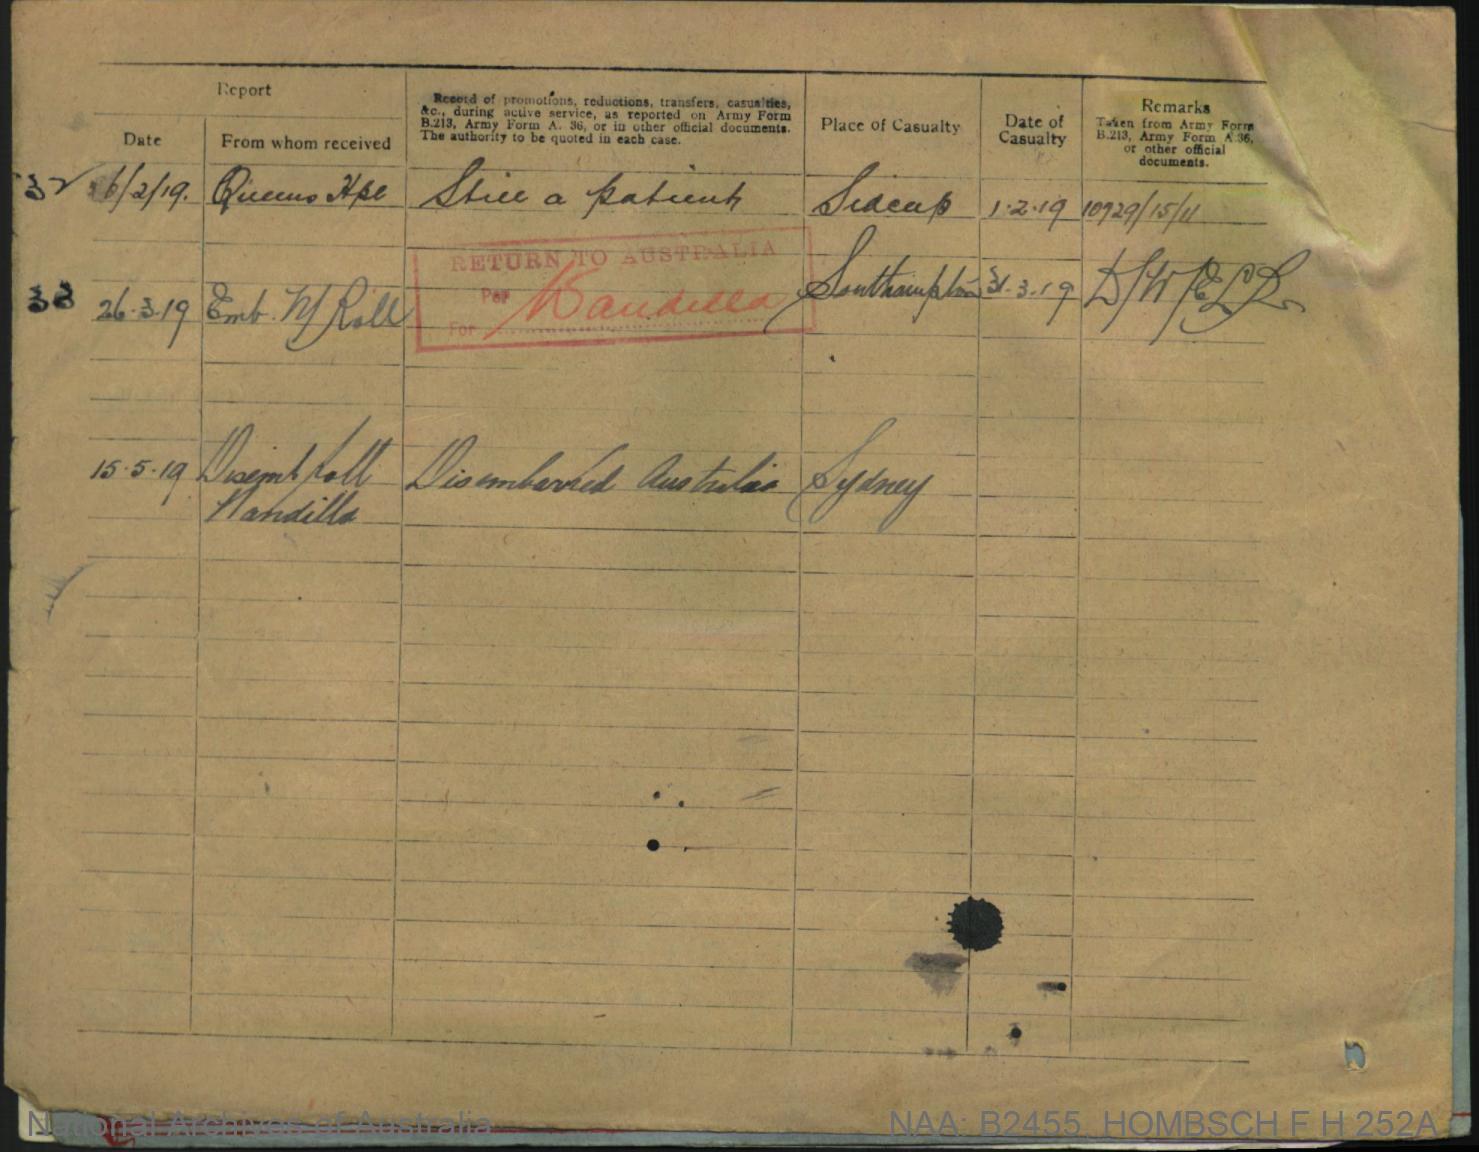 Report
Record of promotions, reductions, transfers, casualties,
&c., during active service, as reported on Army Form
B.213, Army Form A. 36, or in other official documents.
The authority to be quoted in each case.
Place of Casualty
Date of
Casualty
Remarks
Taken from Army Form
B.213, Army Form A.36,
or other official
documents.
Date
From whom received
32 6/2/19. Queens Hpl Still a patient Sidcup 1.2.19 10929/15/11
RETURN TO AUSTRALIA
33 26.3.19 Emb. N/Roll Per Wandilla Southampton 31.3.19
For
15.5.19 Disemb Roll Disembarked Australia Sydney
Wandilla
National Archives of Australia
NAA: B2455, HOMBSCH F H 252A